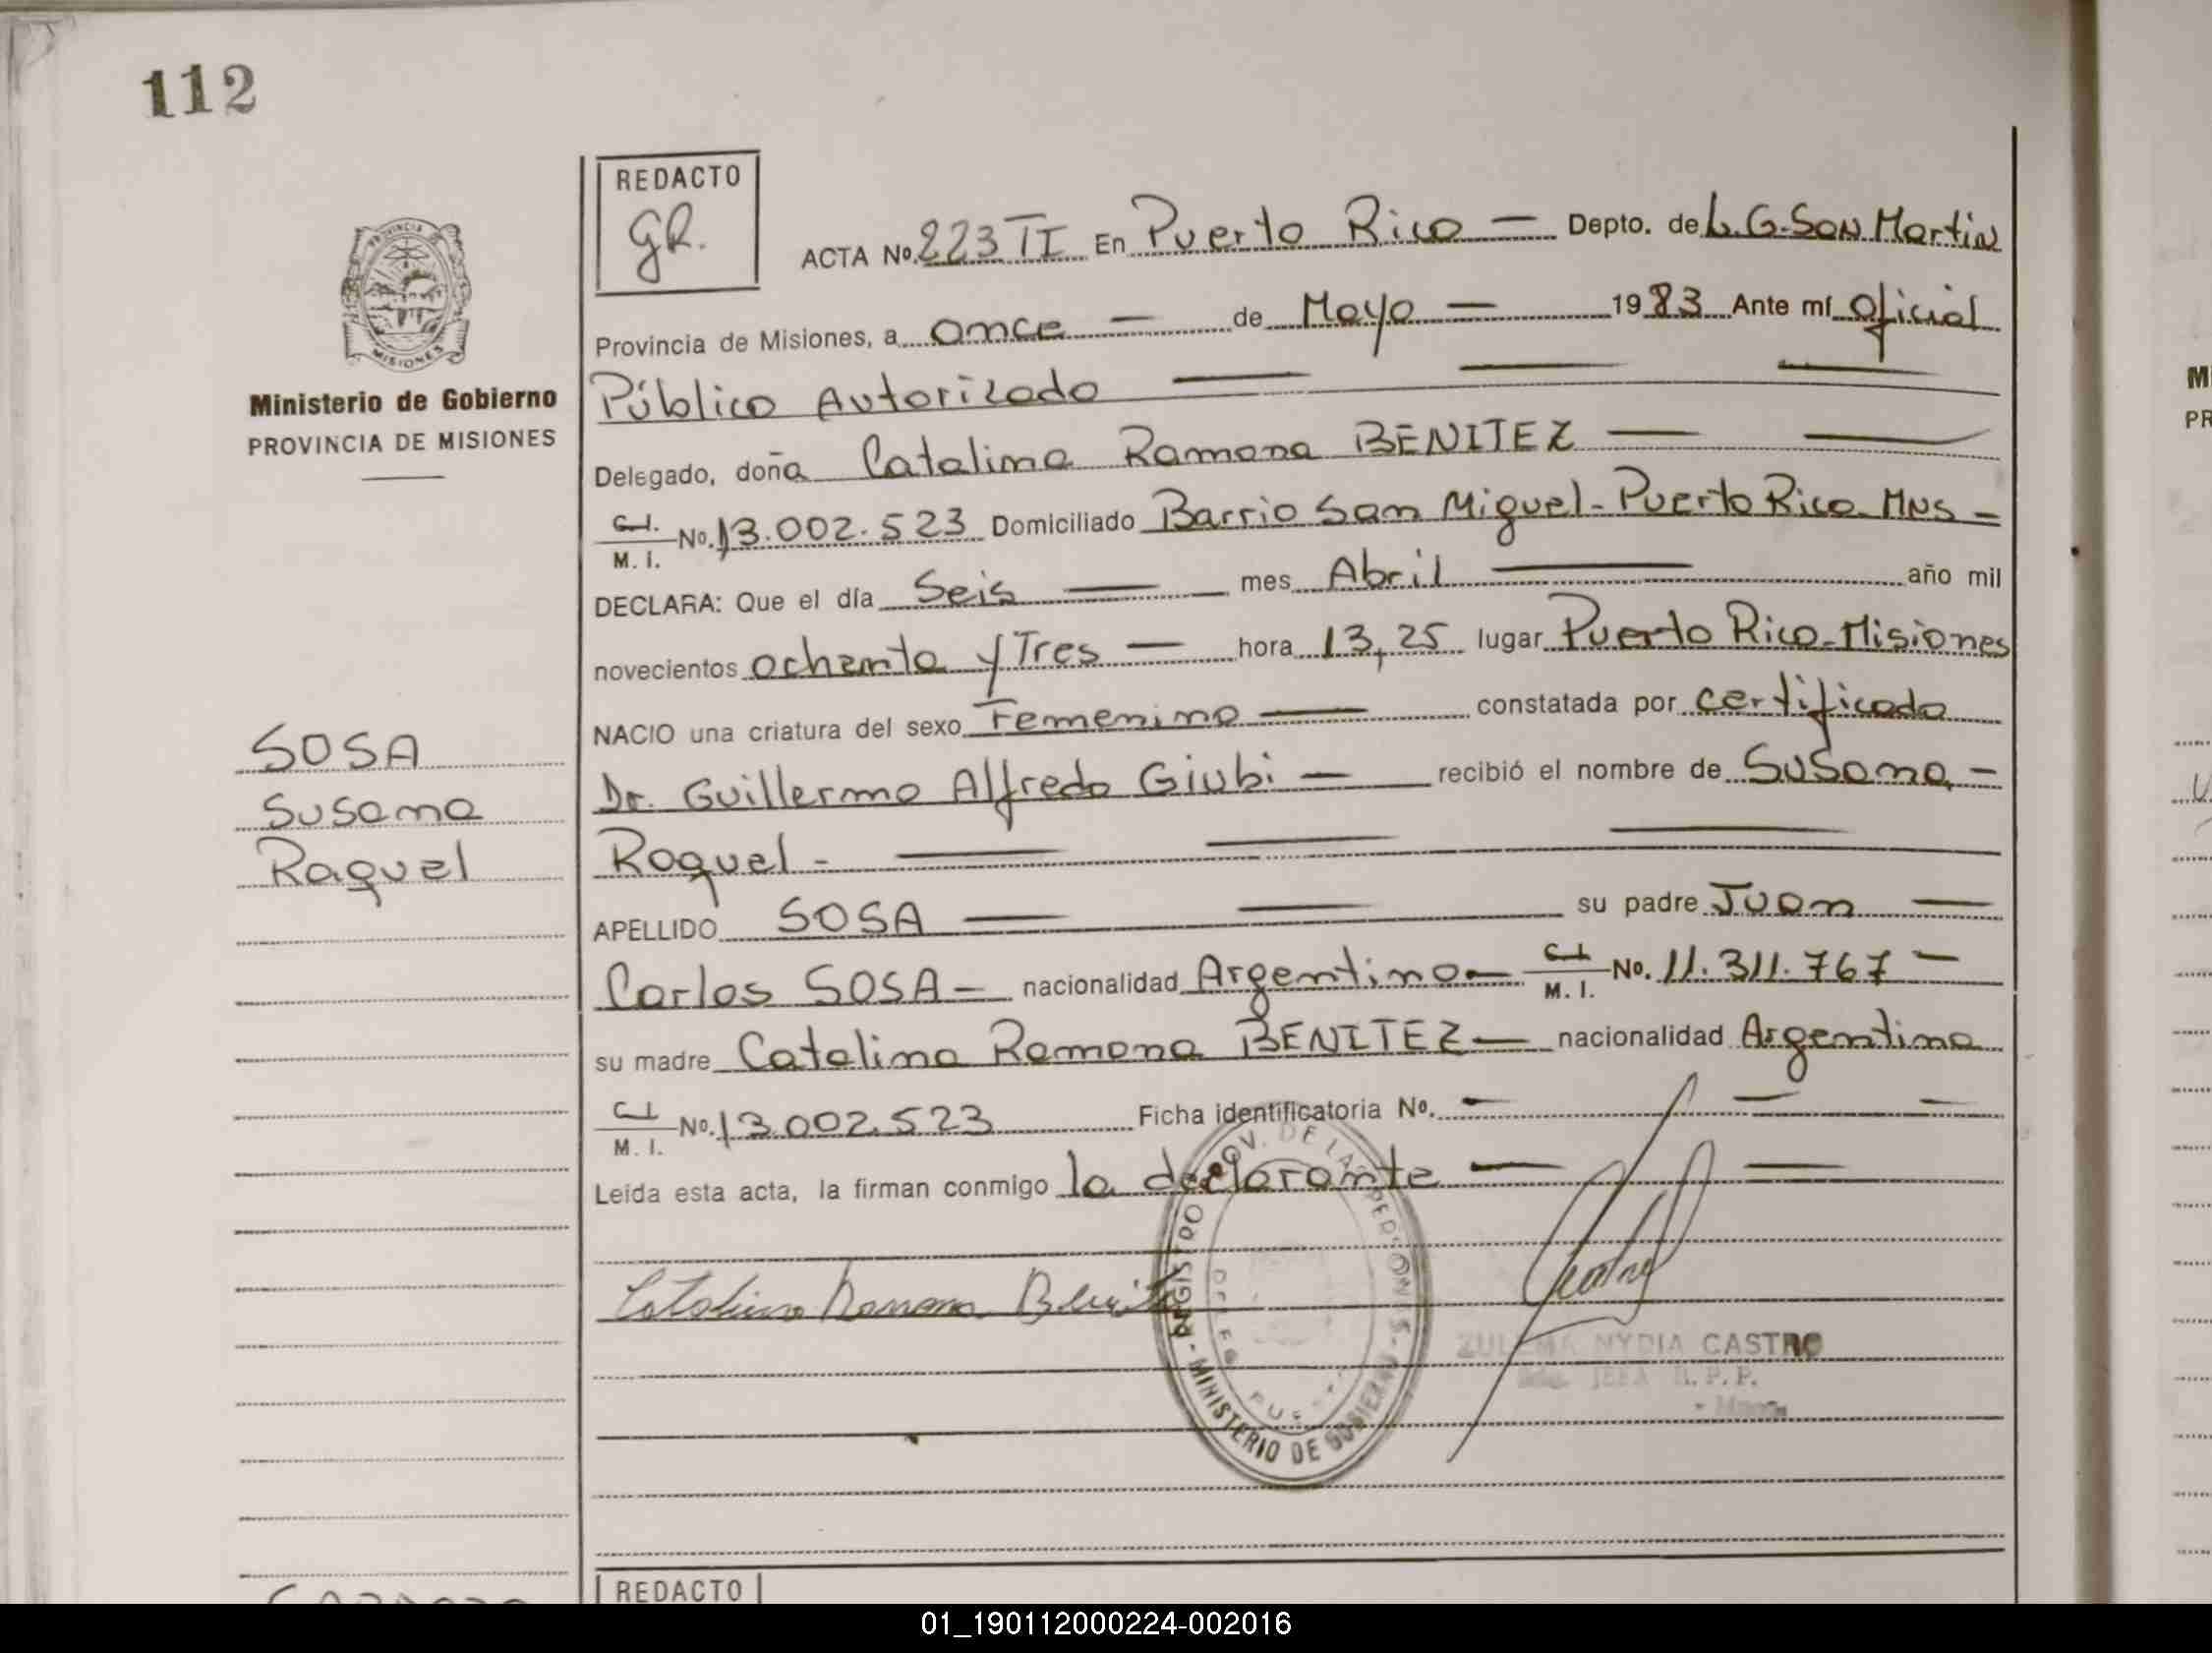 112
REDACTO
GR.
ACTA No. 223 TI En Puerto Rico — Depto. de L.G. San Martin
Provincia de Misiones, a once — de Mayo — 1983 Ante mí Oficial
Público Autorizado — — —
Delegado, doña Catalina Ramona BENITEZ — —
C.I. M. I. No. 13.002.523 Domiciliado Barrio San Miguel - Puerto Rico - Mns -
DECLARA: Que el día Seis — mes Abril — año mil
novecientos ochenta y Tres — hora 13,25 lugar Puerto Rico - Misiones
NACIO una criatura del sexo Femenino — constatada por certificado
Dr. Guillermo Alfredo Giubi — recibió el nombre de Susana -
Raquel - — — —
APELLIDO SOSA — — su padre Juan —
Carlos SOSA — nacionalidad Argentino — C.I. M. I. No. 11.311.767 —
su madre Catalina Ramona BENITEZ — nacionalidad Argentina
C.I. M. I. No. 13.002.523 Ficha identificatoria No. — — —
Leida esta acta, la firman conmigo la declarante — —
Catalina Ramona Benitez
PROVINCIA
MISIONES
Ministerio de Gobierno
PROVINCIA DE MISIONES
SOSA
Susana
Raquel
REGISTRO PROV. DE LAS PERSONAS - MINISTERIO DE GOBIERNO
ZULEMA NYDIA CASTRO
JEFA R. P. P.
REDACTO
M
PR
01_190112000224-002016